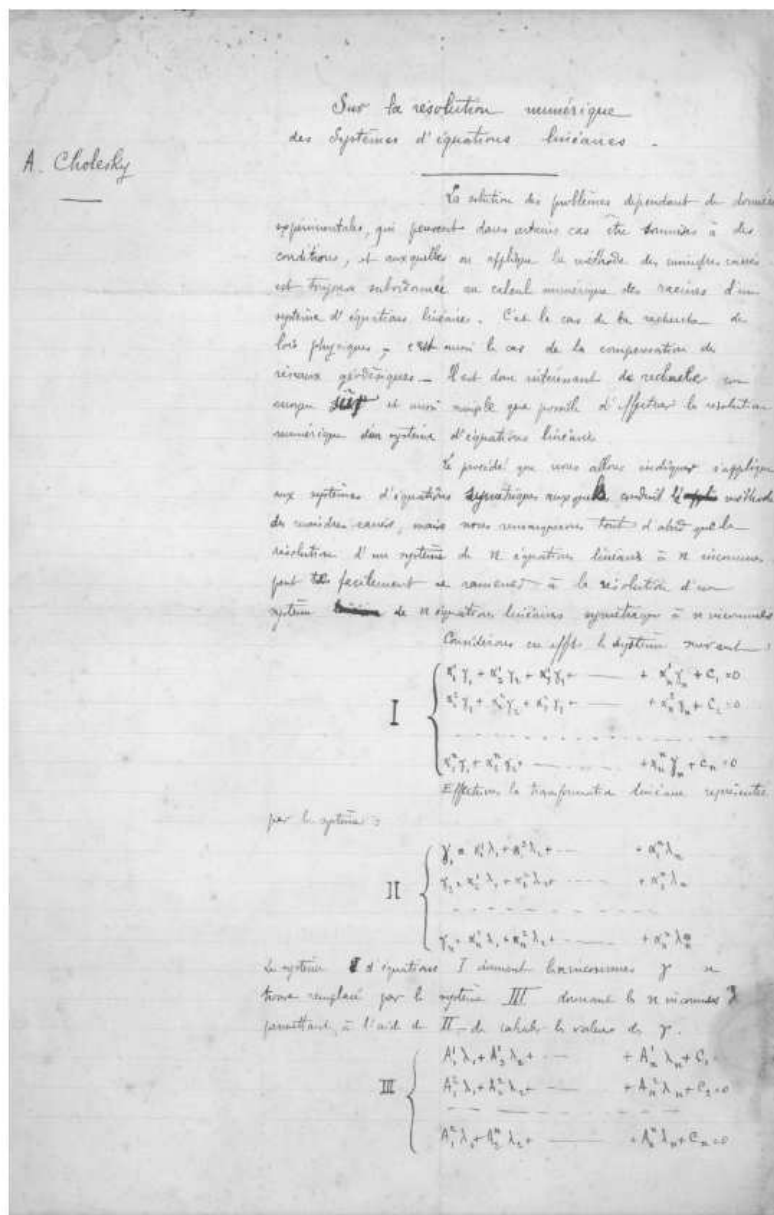 Sur la résolution numérique
des Systèmes d'équations linéaires.
A. Cholesky
La solution des problèmes dépendant de données
expérimentales, qui peuvent dans certains cas être soumises à des
conditions, et auxquelles on applique la méthode des moindres carrés
est toujours subordonnée au calcul numérique des racines d'un
système d'équations linéaires. C'est le cas de la recherche de
lois physiques, c'est aussi le cas de la compensation des
réseaux géodésiques. Il est donc intéressant de rechercher un
moyen sûr et aussi simple que possible d'effectuer la résolution
numérique d'un système d'équations linéaires
Le procédé que nous allons indiquer s'applique
aux systèmes d'équations symétriques auxquels conduit la méthode
des moindres carrés, mais nous remarquerons tout d'abord que la
résolution d'un système de n équations linéaires à n inconnues
peut facilement se ramener à la résolution d'un
système de n équations linéaires symétriques à n inconnues
Considérons en effet le système suivant :
I
α₁¹γ₁ + α₂¹γ₂ + α₃¹γ₃ + ——— + αₙ¹γₙ + C₁ = 0
α₁²γ₁ + α₂²γ₂ + α₃²γ₃ + ——— + αₙ²γₙ + C₂ = 0
α₁ⁿγ₁ + α₂ⁿγ₂ + ——— + αₙⁿγₙ + Cₙ = 0
Effectuons la transformation linéaire représentée
par le système :
II
γ₁ = α₁¹λ₁ + α₁²λ₂ + ——— + α₁ⁿλₙ
γ₂ = α₂¹λ₁ + α₂²λ₂ + ——— + α₂ⁿλₙ
γₙ = αₙ¹λ₁ + αₙ²λ₂ + ——— + αₙⁿλₙ
Le système d'équations I donnant les n inconnues γ se
trouve remplacé par le système III donnant les n inconnues λ
permettant, à l'aide de II de calculer les valeurs des γ.
III
A₁¹λ₁ + A₂¹λ₂ + ——— + Aₙ¹λₙ + C₁
A₁²λ₁ + A₂²λ₂ + ——— + Aₙ²λₙ + C₂ = 0
A₁ⁿλ₁ + A₂ⁿλ₂ + ——— + Aₙⁿλₙ + Cₙ = 0